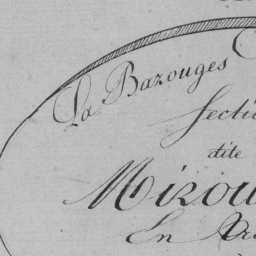 La Bazouges
Secti
dite
Mizou
En